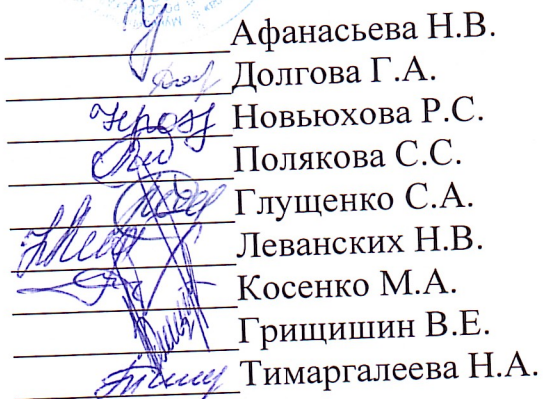 Афанасьева Н.В.
Долгова Г.А.
Новьюхова Р.С.
Полякова С.С.
Глущенко С.А.
Леванских Н.В.
Косенко М.А.
Грищишин В.Е.
Тимаргалеева Н.А.